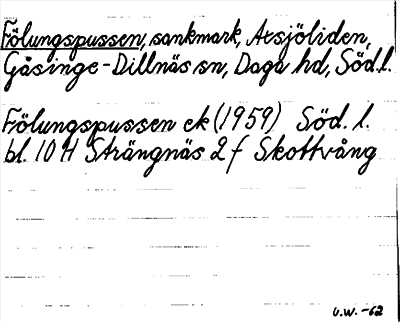 Fölungspussen, sankmark, Atsjöliden,
Gåsinge-Dillnäs sn, Daga hd, Söd.l.
Fölungspussen ek (1959) Söd. l.
bl. 10 H Strängnäs 2 f Skottvång
U.W. -62